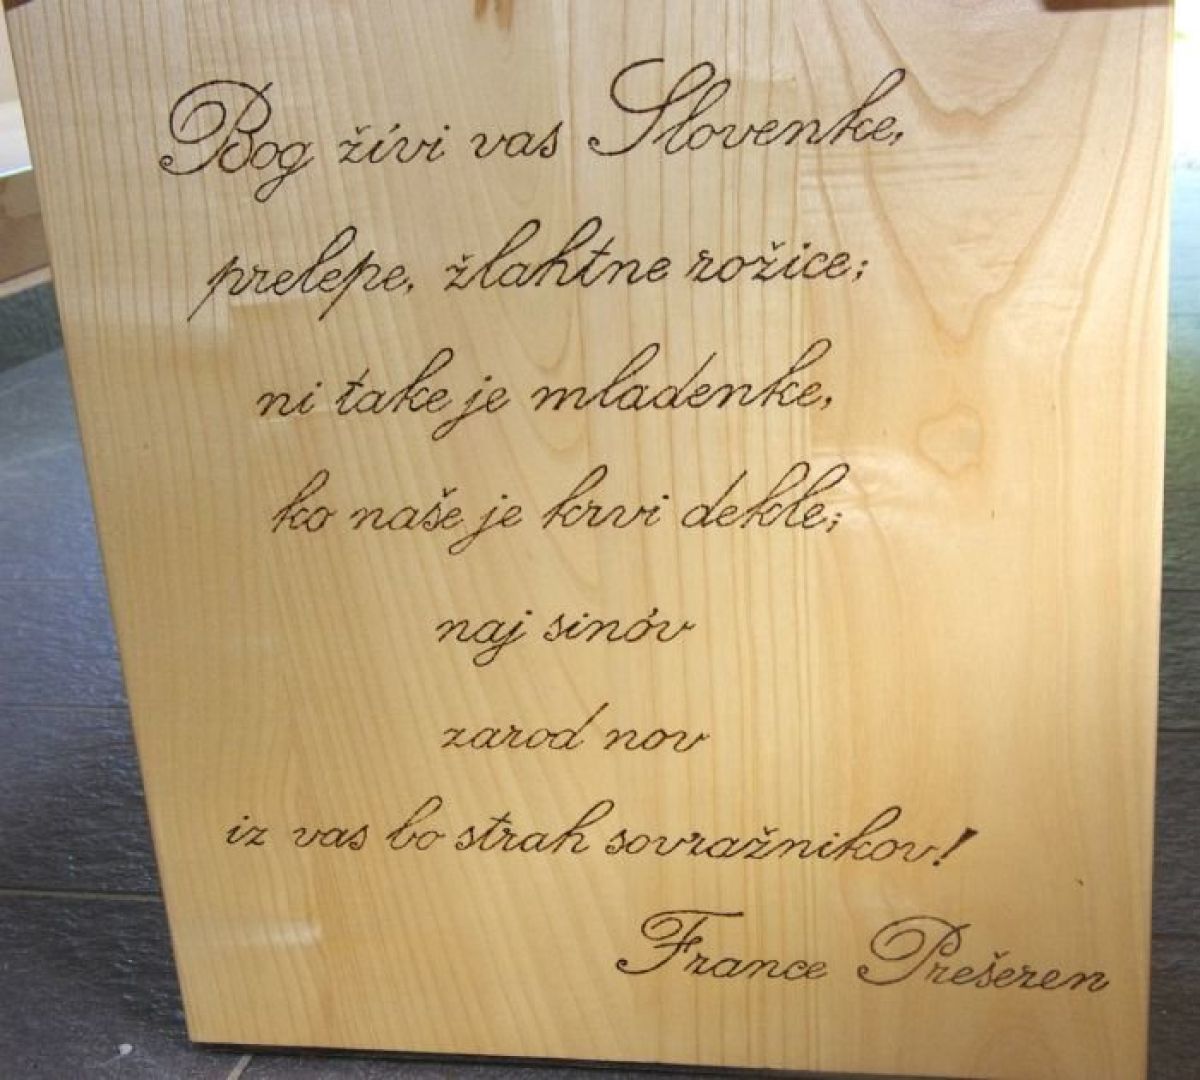 Bog žívi vas Slovenke,
prelepe, žlahtne rožice;
ni take je mladenke,
ko naše je krvi dekle;
naj sinóv
zarod nov
iz vas bo strah sovražnikov!
France Prešeren